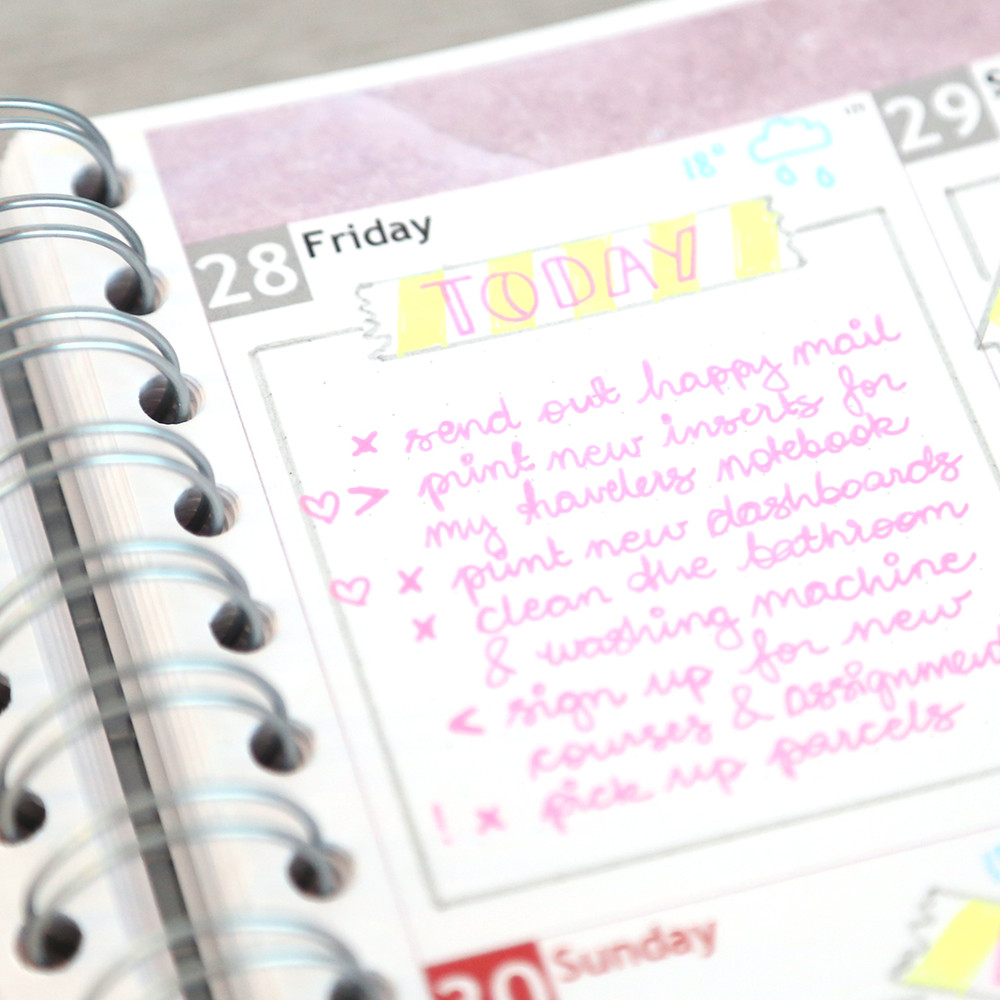 29
18°
28 Friday
TODAY
x send out happy mail
♡ > print new inserts for
my travelers notebook
♡ x print new dashboards
x clean the bathroom
& washing machine
< sign up for new
courses & assignmen
! x pick up parcels
30 Sunday